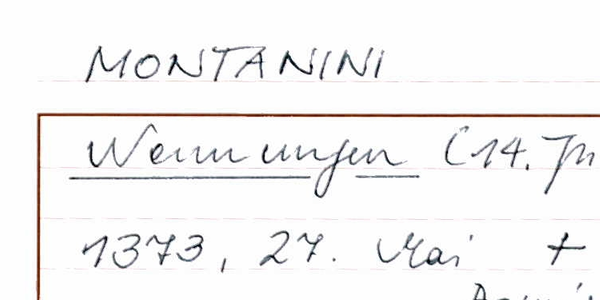 MONTANINI
Wennungen (14. Jh
1373, 27. Mai +